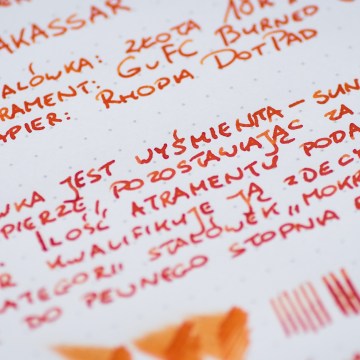 AKASSAR
ALÓWKA: ZŁOTA 18K
RAMENT: GvFC BURNED
APIER: RHODIA DOTPAD
WKA JEST WYŚMIENITA – SUN
PIERZE, POZOSTAWIAJĄC ZA
. ILOŚĆ ATRAMENTU PODA
R KWALIFIKUJE JĄ ZDECY
ATEGORII STALÓWEK „MOKR
DO PEWNEGO STOPNIA